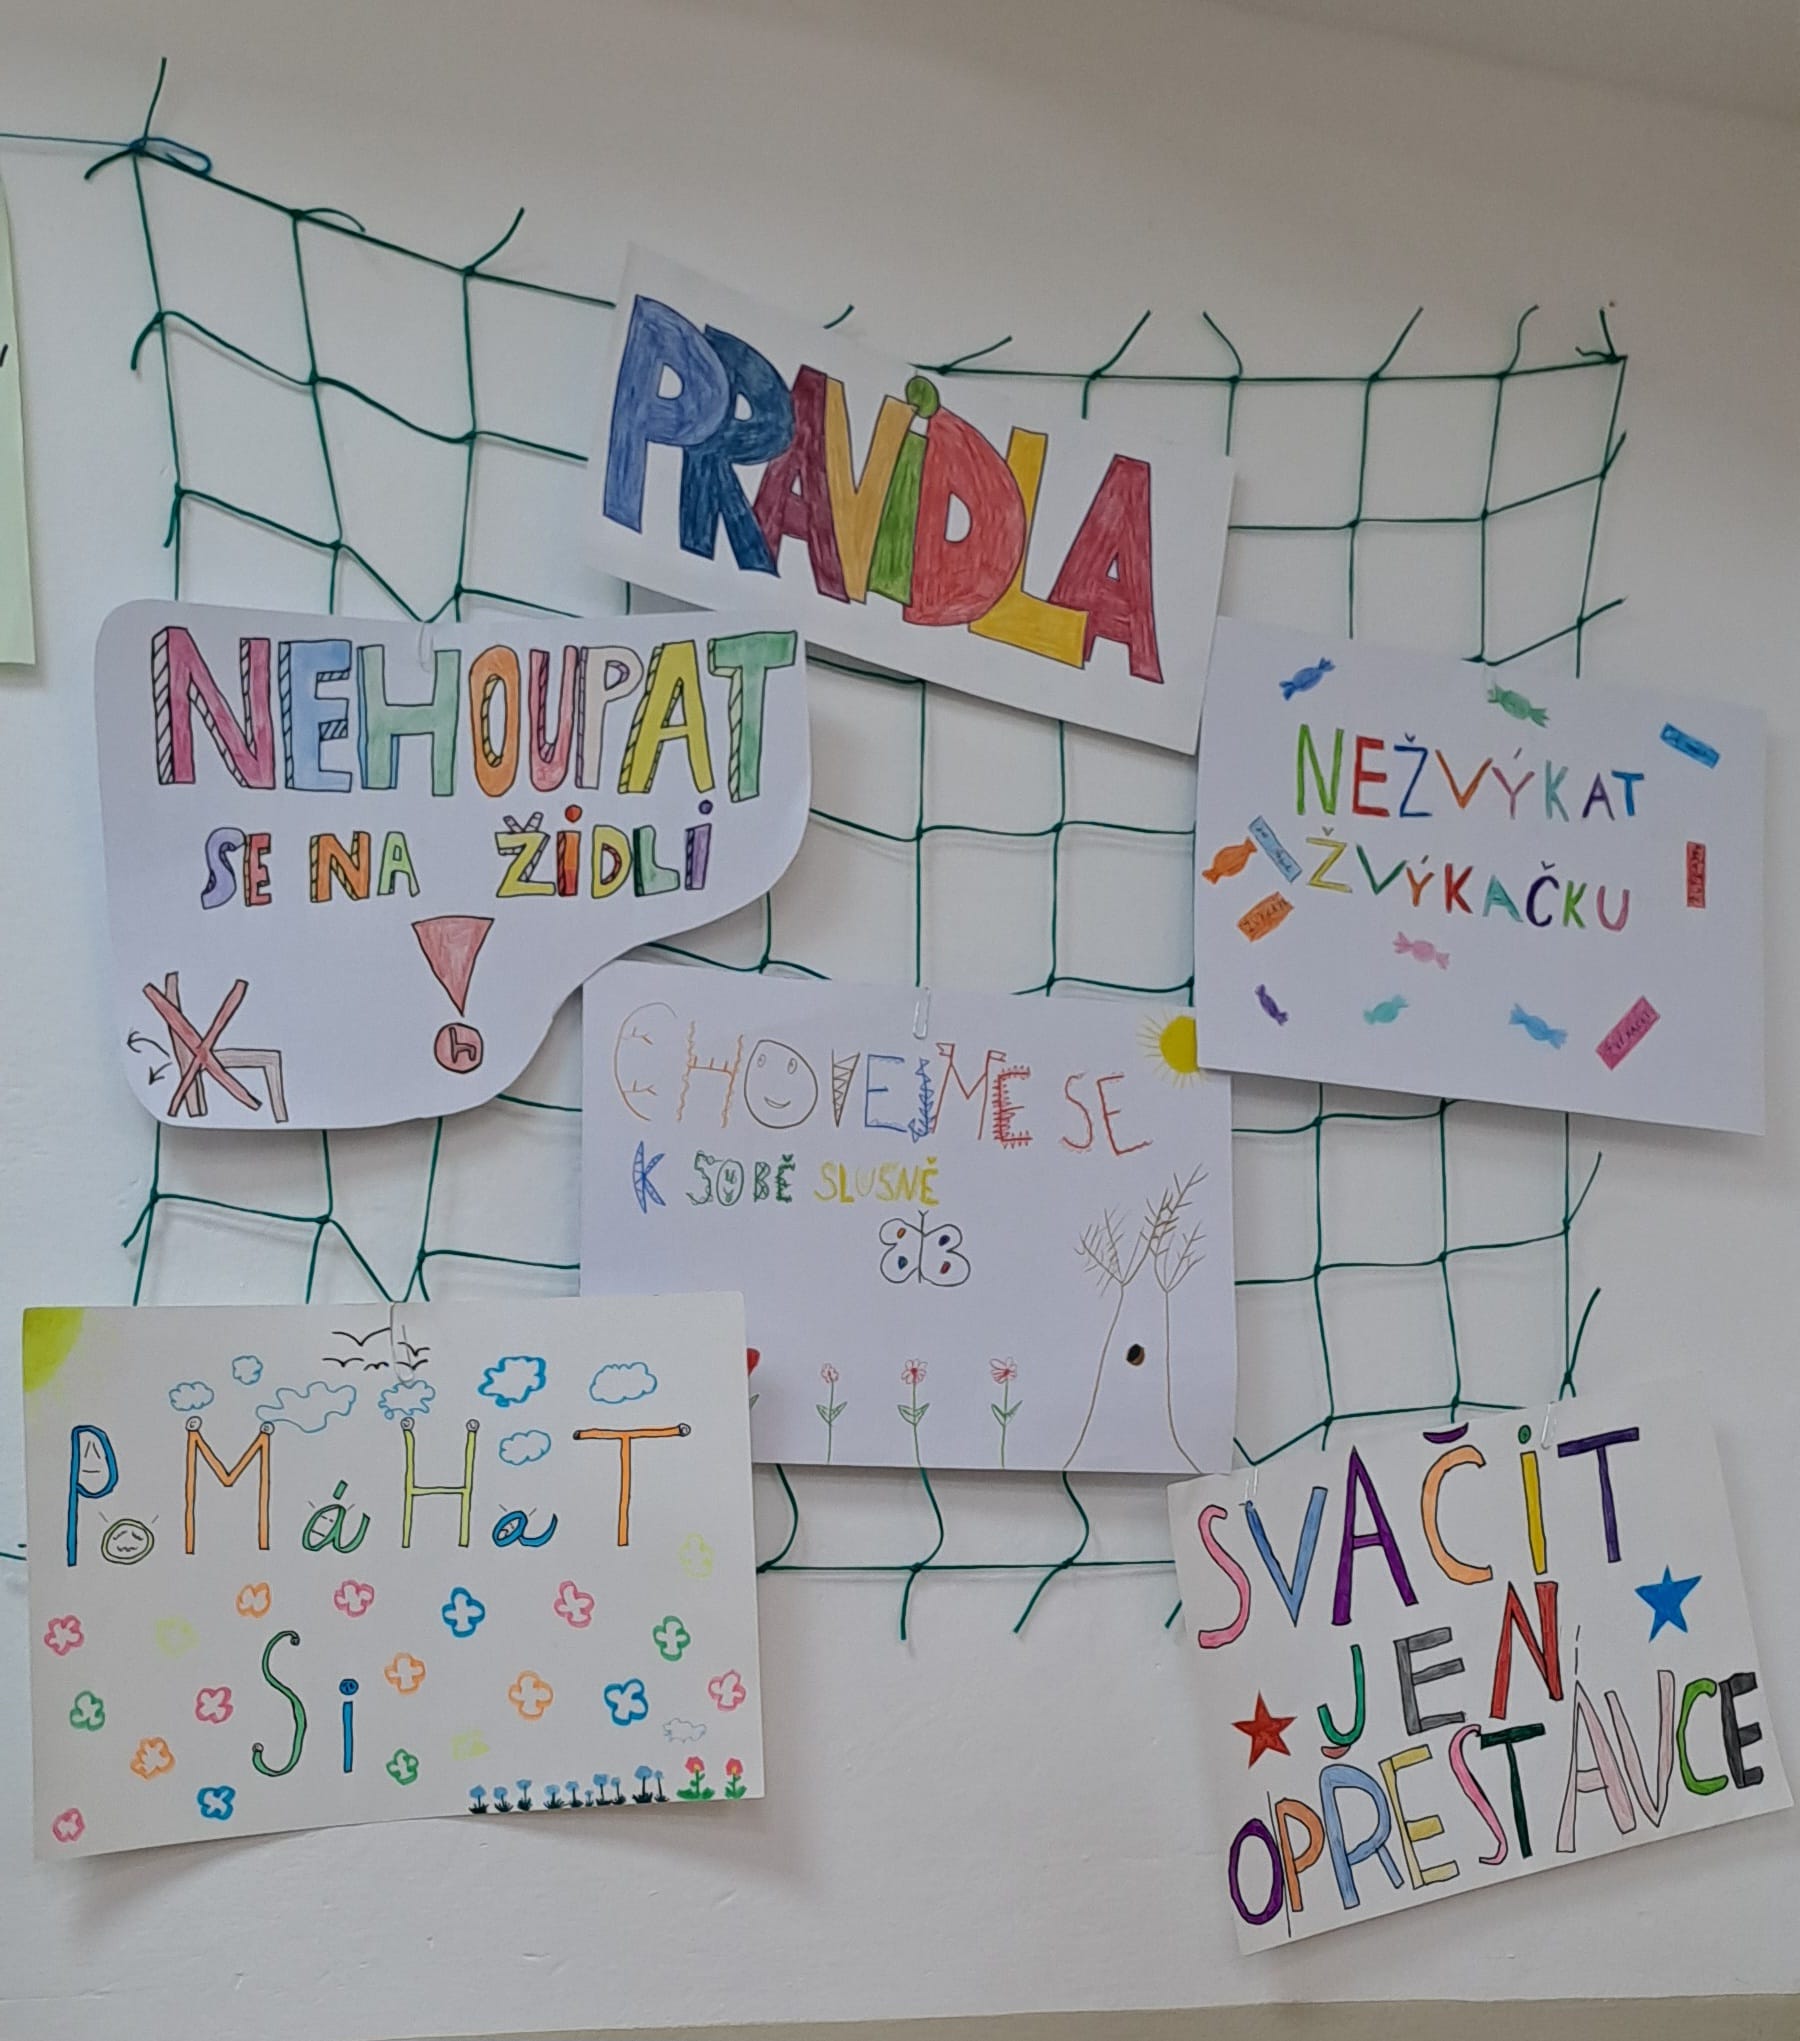 PRAViDLA
NEHOUPAT
SE NA ŽiDLi
NEŽVÝKAT
ŽVÝKAČKU
CHOVEJME SE
K SOBĚ SLUSNĚ
PoMáHaT
Si
SVAČiT
JEN
OPŘESTÁVCE